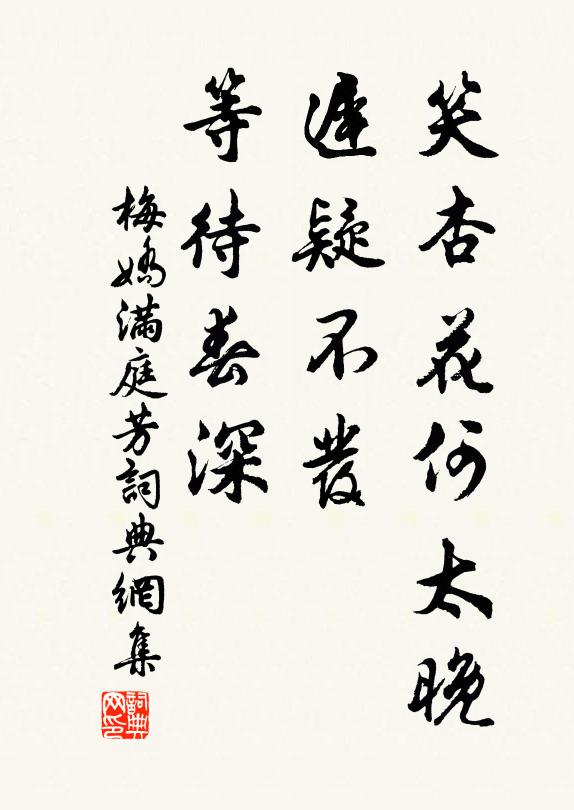 笑杏花何太晚
遲疑不發
等待春深
梅嬌滿庭芳詞典網集
詞典网印